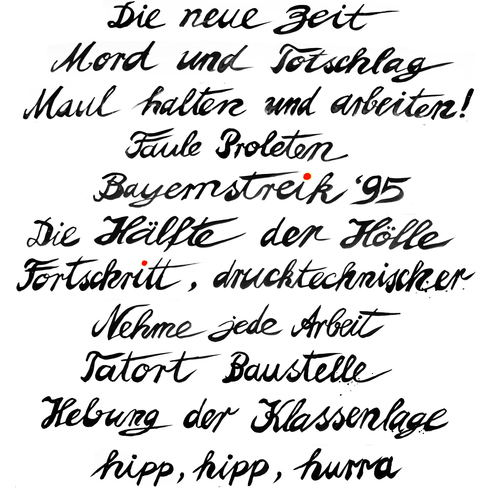 Die neue Zeit
Mord und Totschlag
Maul halten und arbeiten!
Faule Proleten
Bayernstreik '95
Die Hälfte der Hölle
Fortschritt, drucktechnischer
Nehme jede Arbeit
Tatort Baustelle
Hebung der Klassenlage
hipp, hipp, hurra